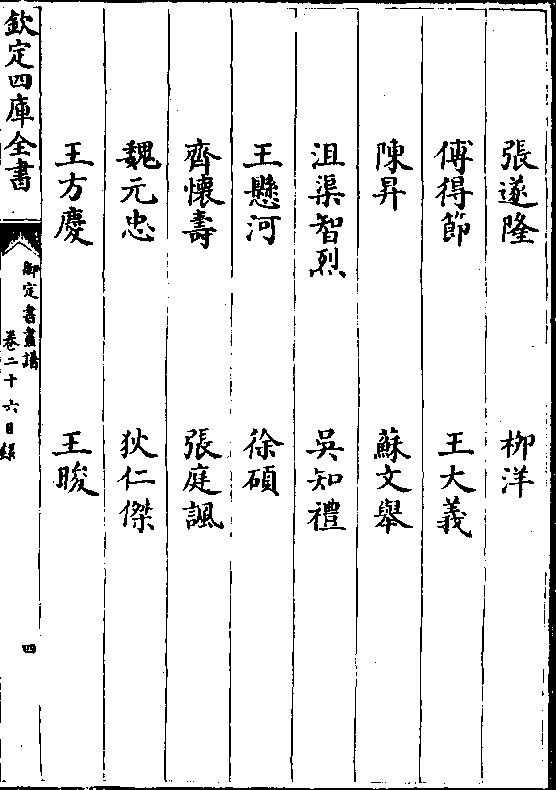 張遂隆　柳洋
傅得節　王大義
陳昇　蘇文舉
沮渠智烈　吳知禮
王懸河　徐碩
齊懷壽　張庭諷
魏元忠　狄仁傑
王方慶　王晙
欽定四庫全書　御定書畫譜　卷二十六目錄　四